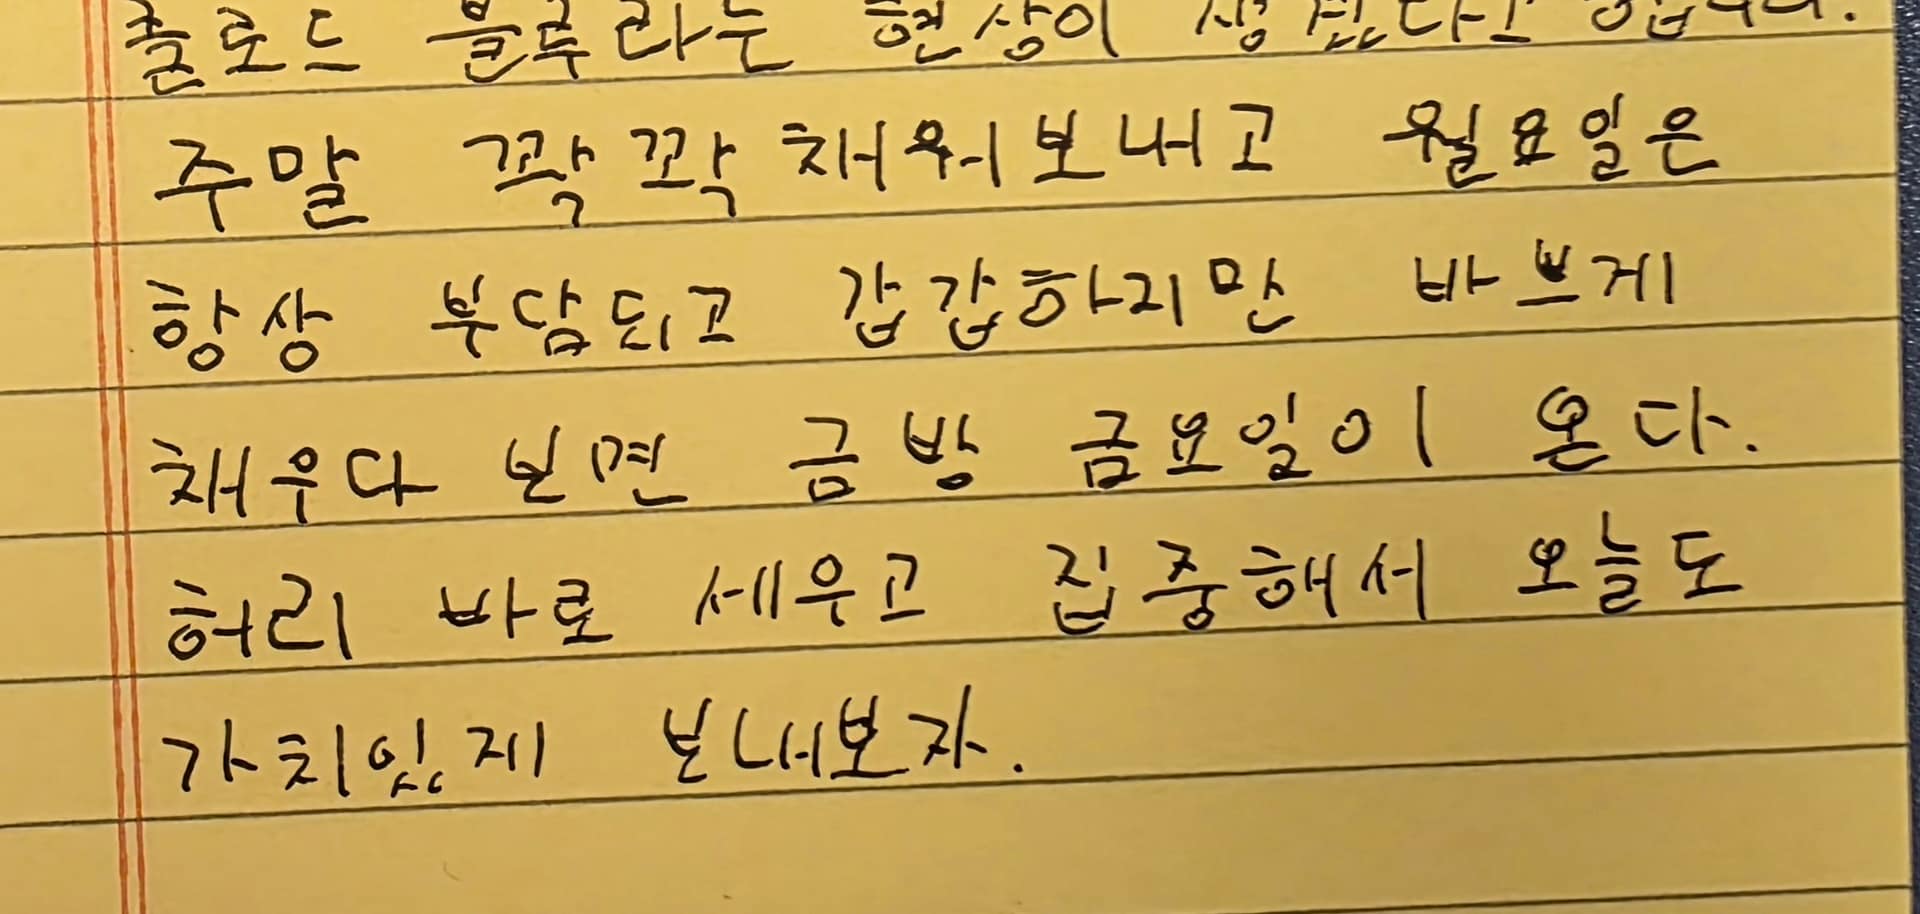 클로드 블루라는 현상이 생겼다고 합니다.
주말 꽉꽉 채워보내고 월요일은
항상 부담되고 갑갑하지만 바쁘게
채우다 보면 금방 금요일이 온다.
허리 바로 세우고 집중해서 오늘도
가치있게 보내보자.